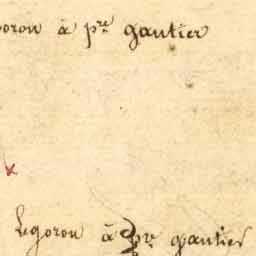 oron à pre gautier
Legoron à pre gautier